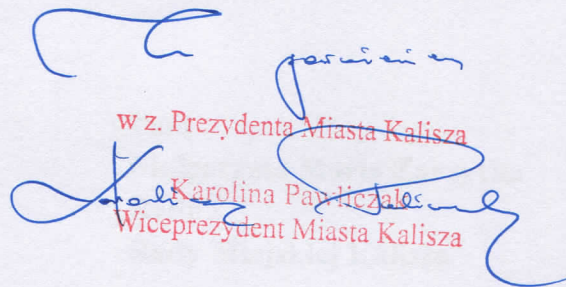 Z poważaniem
w z. Prezydenta Miasta Kalisza
Karolina Pawliczak
Wiceprezydent Miasta Kalisza